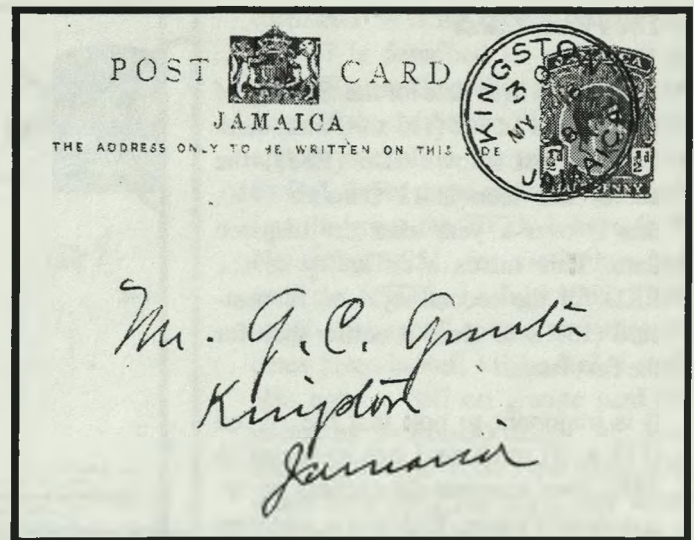 POST CARD
JAMAICA
THE ADDRESS ONLY TO BE WRITTEN ON THIS SIDE
KINGSTON
MY
JAMAICA
½d ½d
Mr. G. C. Gunter
Kingston
Jamaica